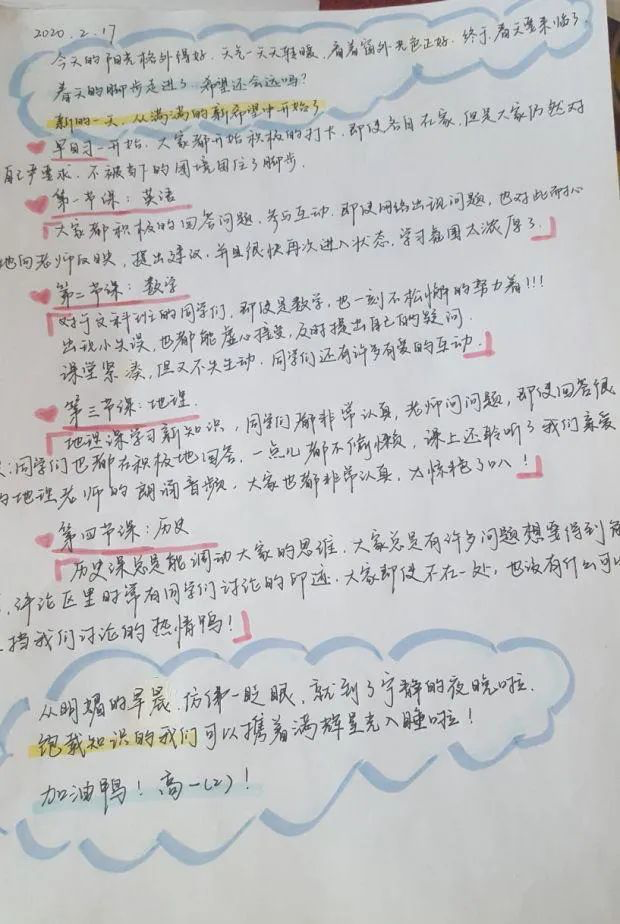 2020.2.17
今天的阳光格外得好，天气一天天转暖，看着窗外光色正好，终于，春天要来临了，
春天的脚步走进了，希望还会远吗？
新的一天，从满满的新希望中开始了
早自习一开始，大家都开始积极的打卡，即使各自在家，但是大家仍然对
自己严要求，不被当下的困境困住了脚步。
第一节课：英语
大家都积极的回答问题，参与互动，即使网络出现问题，也对此耐心
地向老师反映，提出建议，并且很快再次进入状态，学习氛围太浓厚了。
第二节课：数学
对于文科班的同学们，即使是数学，也一刻不松懈的努力着！！！
出现小失误，也都能虚心接受，及时提出自己的疑问。
课堂紧凑，但又不失生动，同学们还有许多有爱的互动。
第三节课：地理
地理课学习新知识，同学们都非常认真，老师问问题，即使回答很
同学们也都在积极地回答，一点儿都不偷懒，课上还聆听了我们亲爱
的地理老师的朗诵音频，大家也都非常认真，太惊艳了叭！
第四节课：历史
历史课总是能调动大家的思维，大家总是有许多问题想要得到解
，评论区里时常有同学们讨论的印迹，大家即使不在一处，也没有什么可以
挡我们讨论的热情鸭！
从明媚的早晨，仿佛一眨眼，就到了宁静的夜晚啦，
饱载知识的我们可以携着满辉星光入睡啦！
加油鸭！高一(2)！